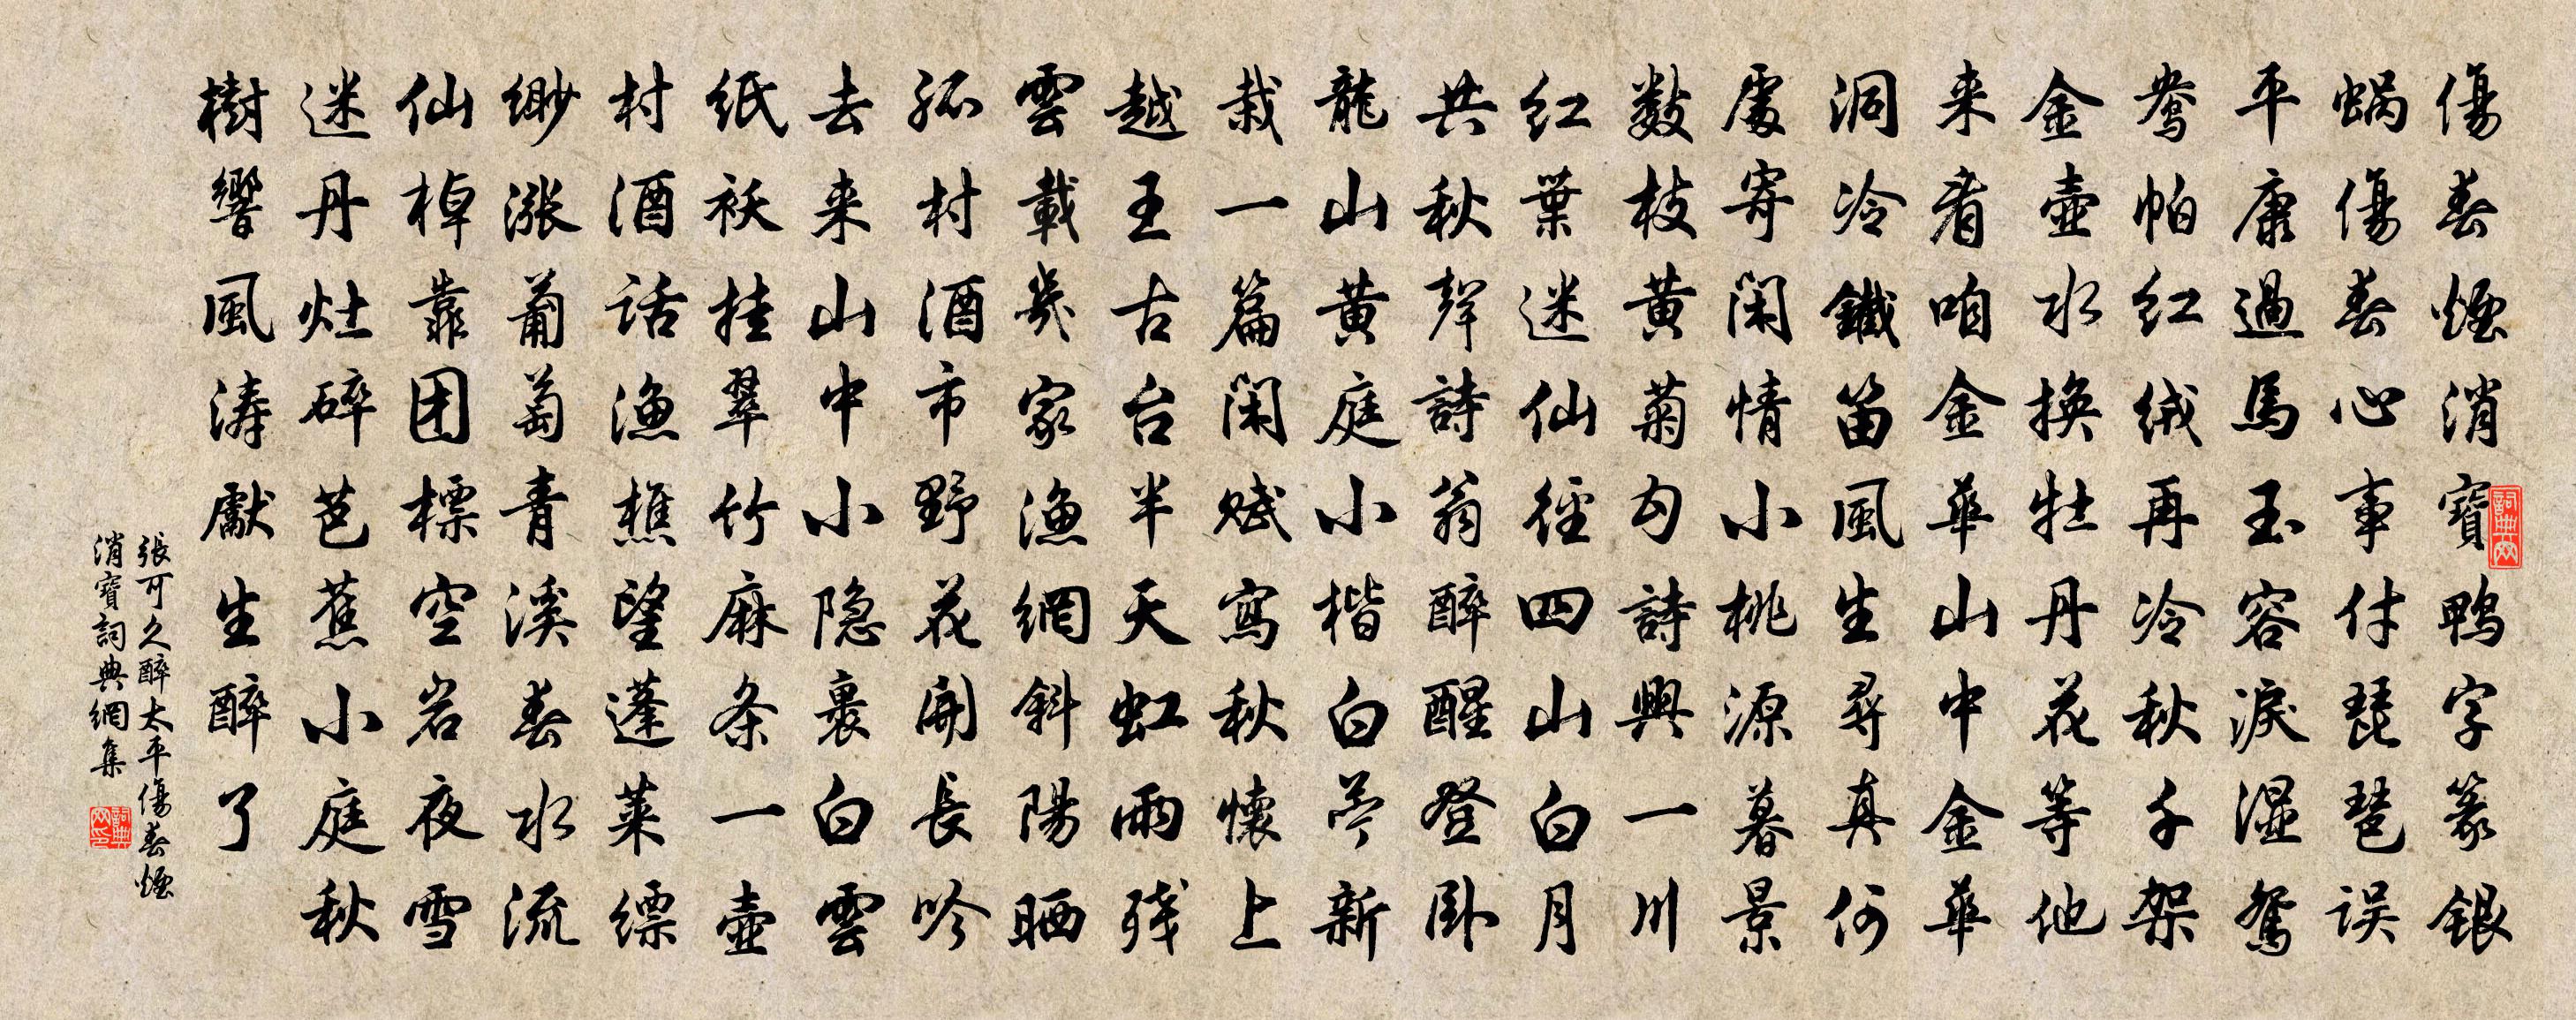 傷春煙消寶鴨字篆銀
蝸傷春心事付琵琶误
平康過馬玉容淚湿鴛
鴦帕红绒再冷秋千架
金壺水换牡丹花等他
来看咱金華山中金華
洞冷鐵笛風生尋真何
處寄閑情小桃源暮景
數枝黄菊勾詩興一川
红葉迷仙徑四山白月
共秋聲詩翁醉醒登卧
龍山黄庭小楷白苧新
裁一篇閑賦寫秋懷上
越王古台半天虹雨残
雲載幾家漁網斜陽晒
孤村酒市野花開長吟
去来山中小隐裹白雲
纸袄挂翠竹麻条一壺
村酒话漁樵望蓬萊缥
缈漲葡萄青溪春水流
仙棹靠团標空岩夜雪
迷丹灶碎芭蕉小庭秋
樹響風濤獻生醉了
張可久醉太平傷春煙
消寶詞典網集
詞典网
詞典网印